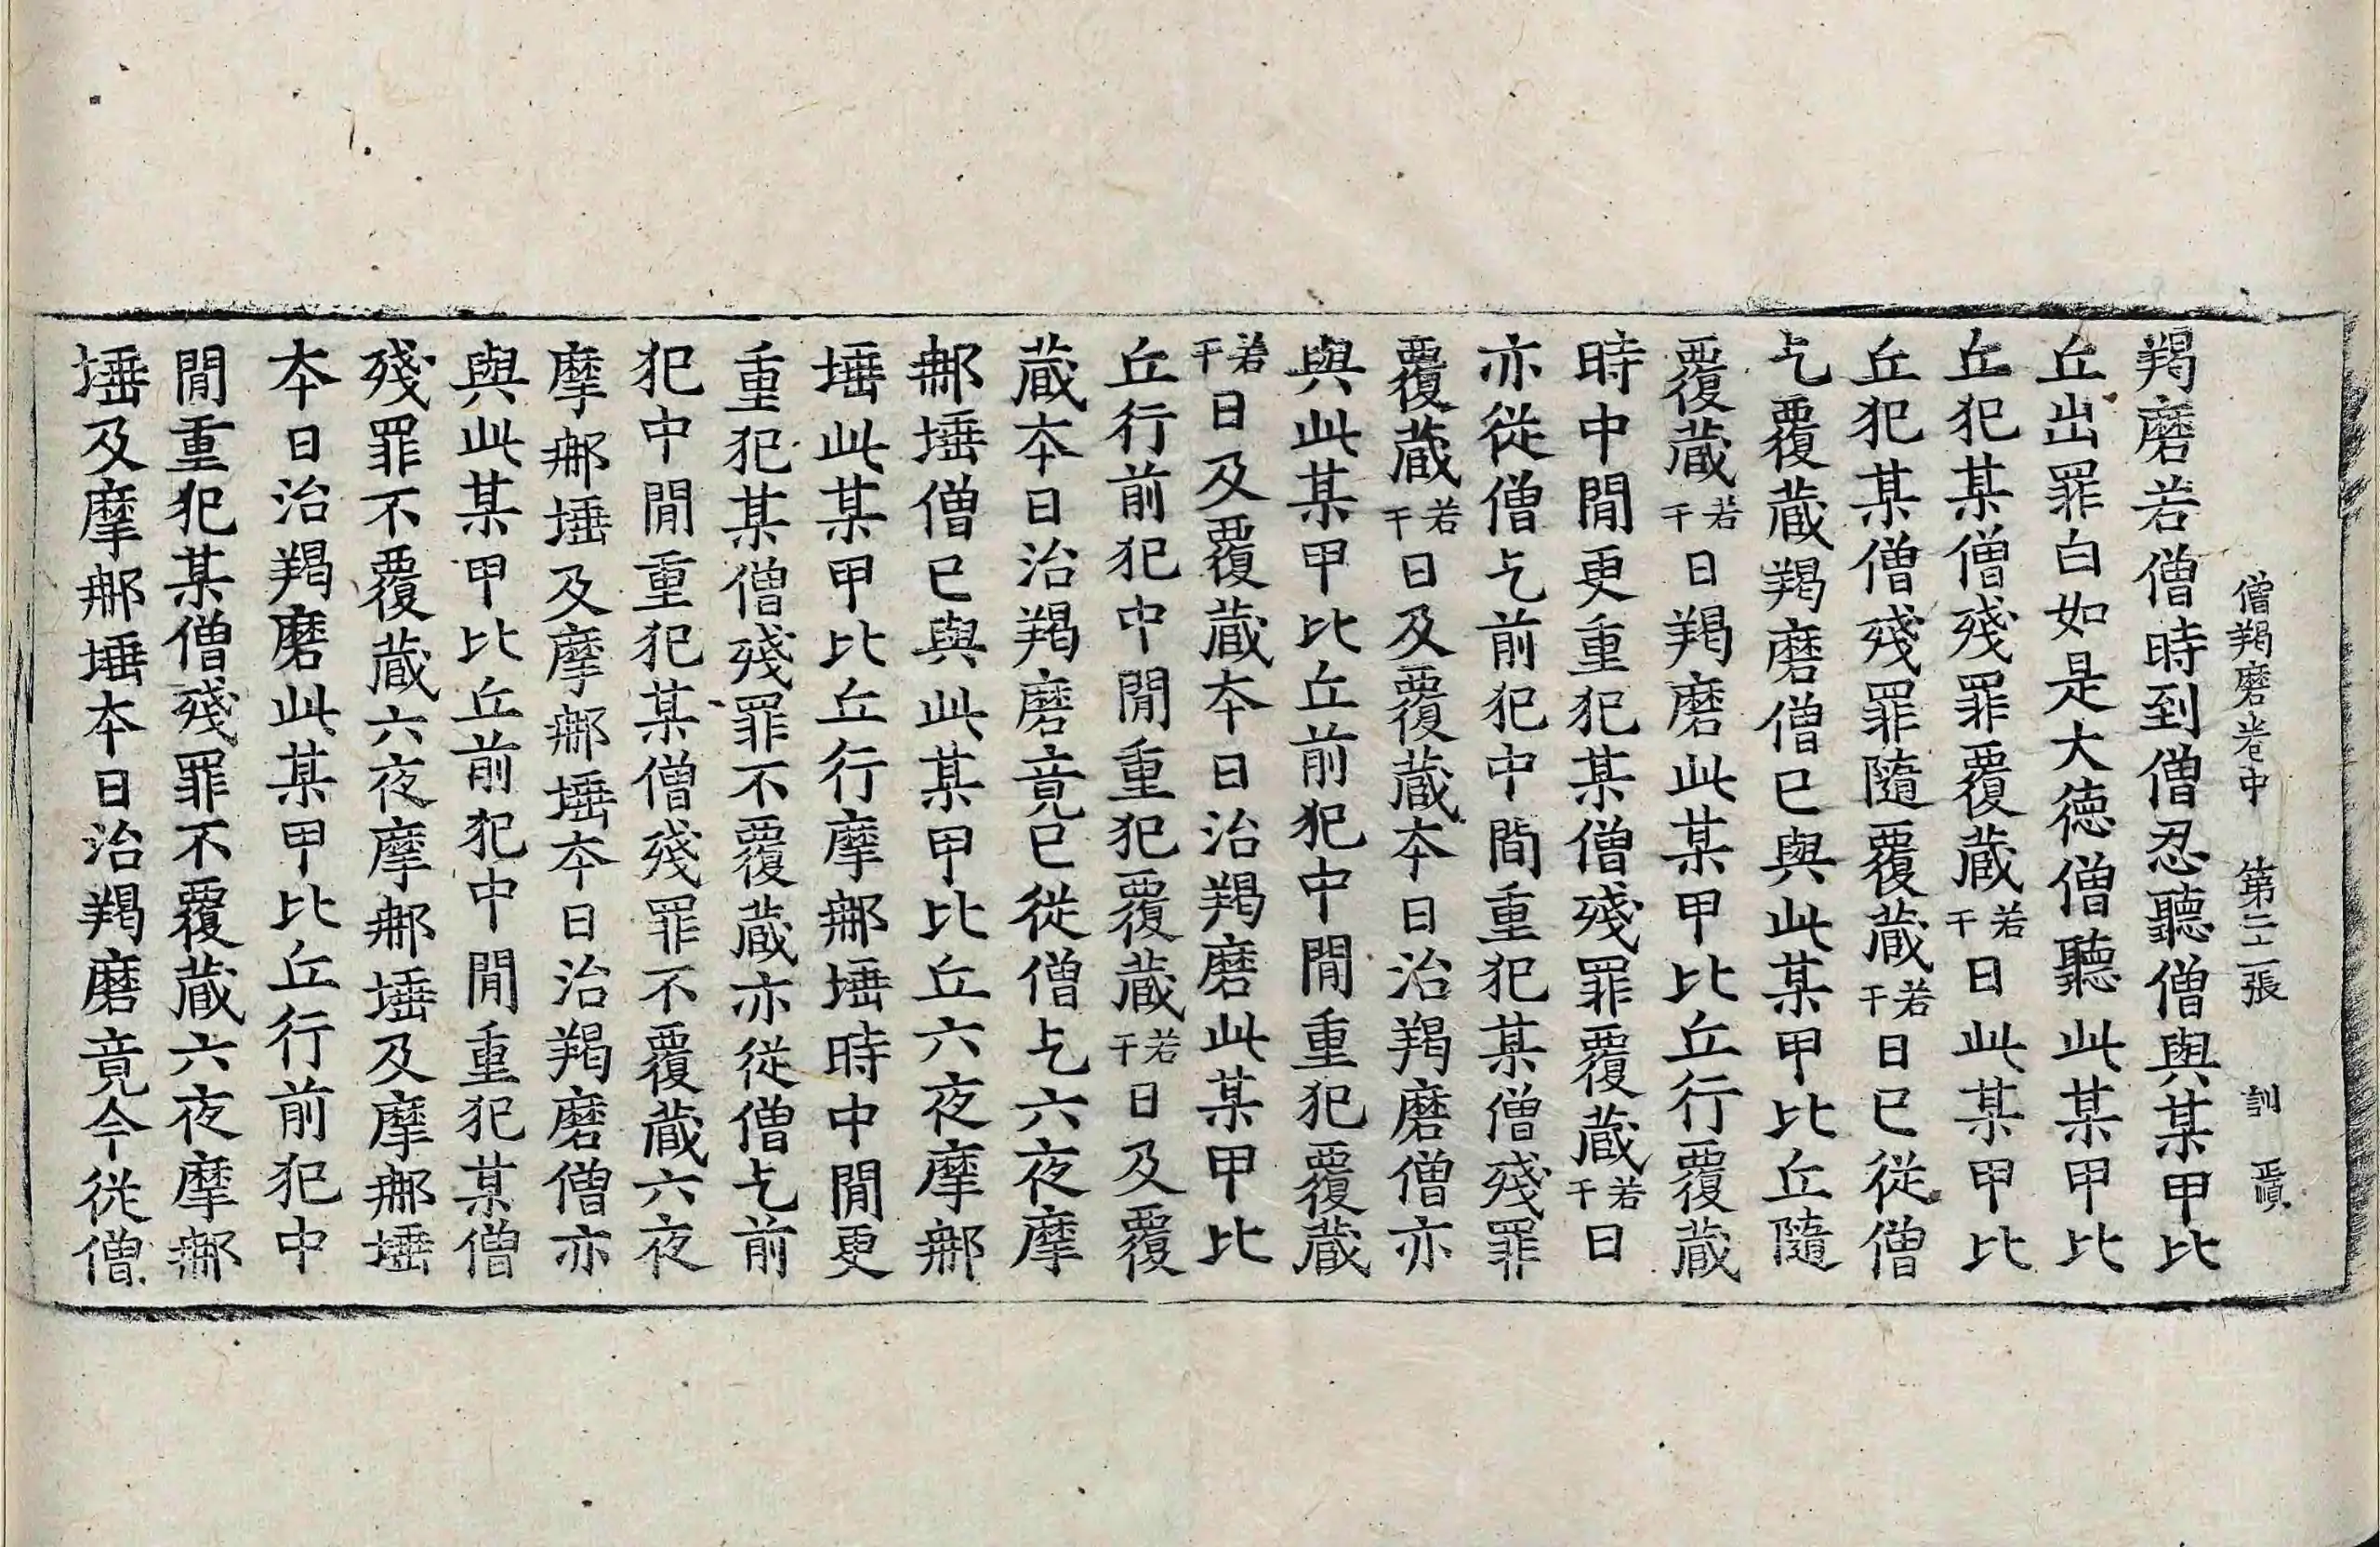 僧羯磨卷中 第張 訓
羯磨若僧時到僧忍聽僧與某甲比
丘出罪白如是大德僧聽此某甲比
丘犯某僧殘罪覆藏若干日此某甲比
丘犯某僧殘罪隨覆藏若干日已從僧
乞覆藏羯磨僧已與此某甲比丘隨
覆藏若干日羯磨此某甲比丘行覆藏
時中閒更重犯某僧殘罪覆藏若干日
亦從僧乞前犯中間重犯某僧殘罪
覆藏若干日及覆藏本日治羯磨僧亦
與此某甲比丘前犯中閒重犯覆藏
若干日及覆藏本日治羯磨此某甲比
丘行前犯中閒重犯覆藏若干日及覆
藏本日治羯磨竟已從僧乞六夜摩
那埵僧已與此某甲比丘六夜摩那
埵此某甲比丘行摩那埵時中閒更
重犯某僧殘罪不覆藏亦從僧乞前
犯中閒重犯某僧殘罪不覆藏六夜
摩那埵及摩那埵本日治羯磨僧亦
與此某甲比丘前犯中閒重犯某僧
殘罪不覆藏六夜摩那埵及摩那埵
本日治羯磨此某甲比丘行前犯中
閒重犯某僧殘罪不覆藏六夜摩那
埵及摩那埵本日治羯磨竟今從僧